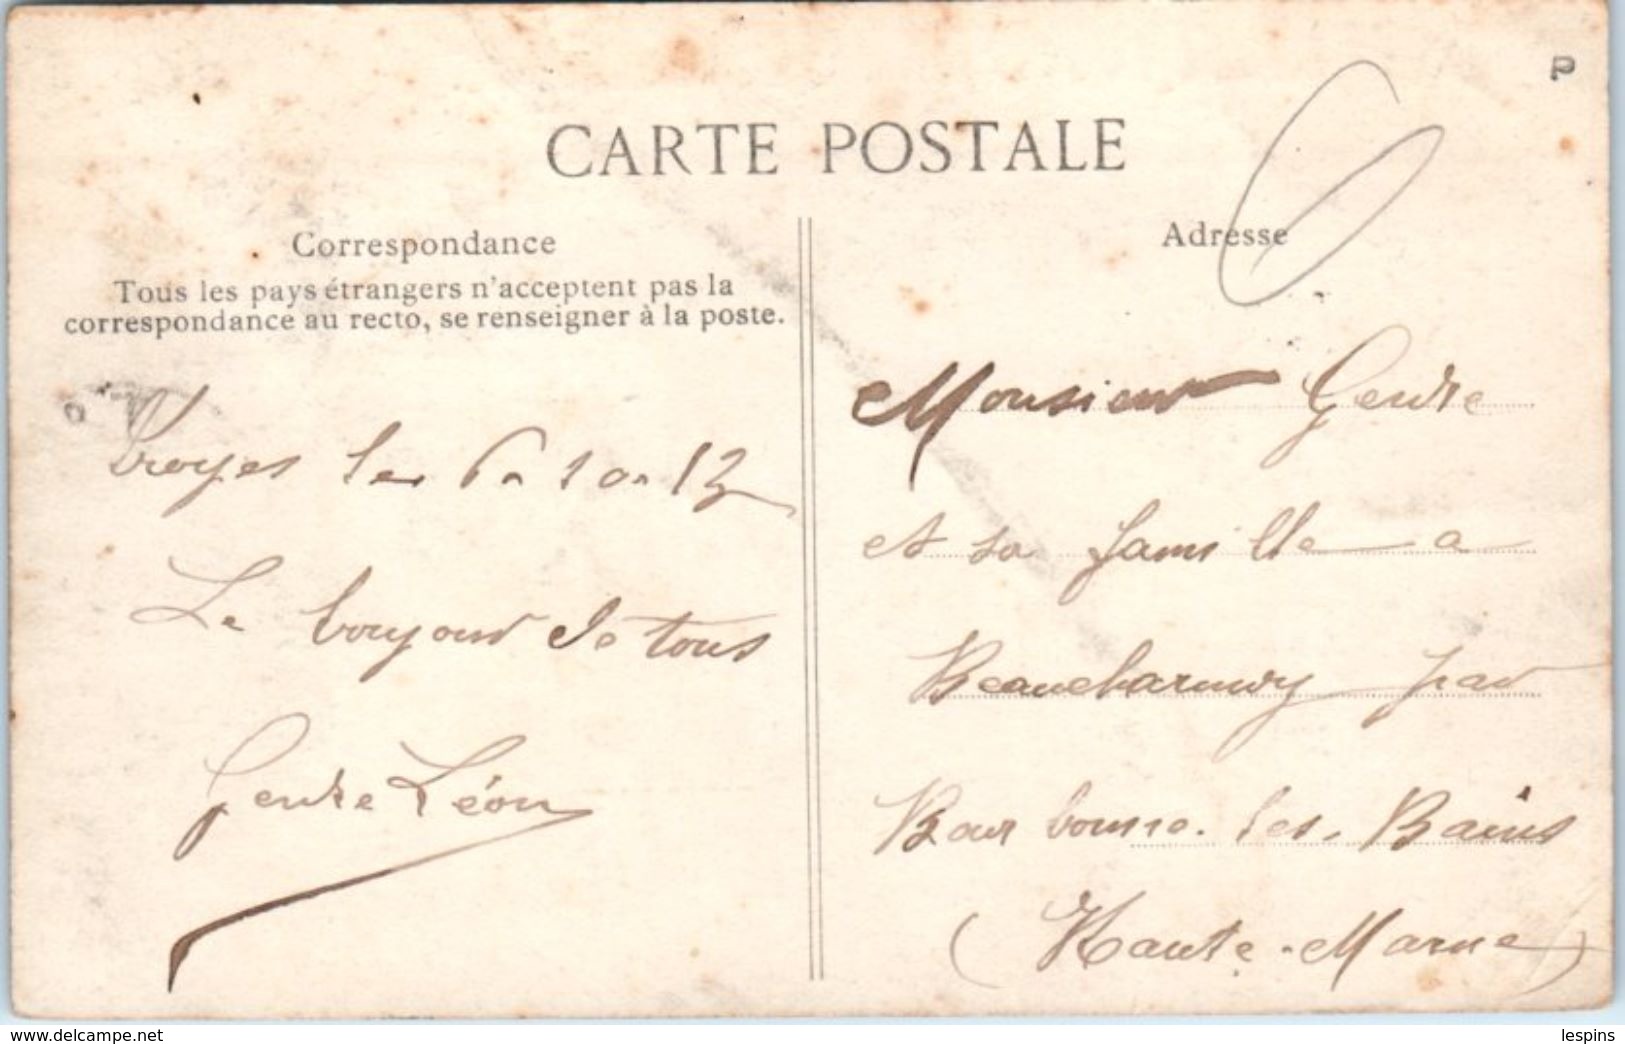 P
CARTE POSTALE
Correspondance
Tous les pays étrangers n'acceptent pas la
correspondance au recto, se renseigner à la poste.
Troyes le 6-10-13
Le bonjour de tous
Gendre Léon
Adresse
Monsieur Gendre
et sa famille a
Beaucharmoy par
Bourbonne-les-Bains
(Haute-Marne)
www.delcampe.net
lespins